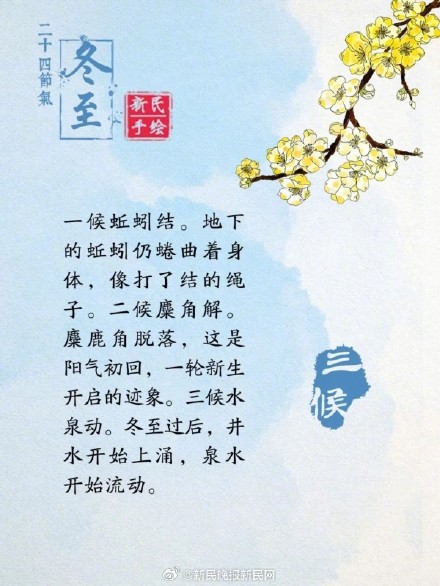 二十四節氣
冬至
新民
手绘
一候蚯蚓结。地下
的蚯蚓仍蜷曲着身
体，像打了结的绳
子。二候麋角解。
麋鹿角脱落，这是
阳气初回，一轮新生
开启的迹象。三候水
泉动。冬至过后，井
水开始上涌，泉水
开始流动。
三候
@新民晚报新民网